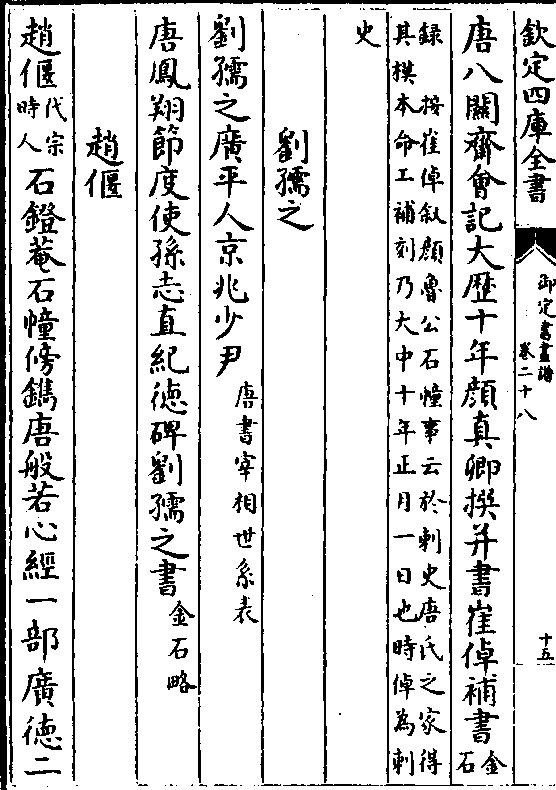 欽定四庫全書
御定書畫譜
卷二十八
十五
唐八關齋會記大歷十年顔真卿撰并書崔倬補書金石
録 按崔倬叙顔魯公石幢事云於刺史唐氏之家得
其模本命工補刻乃大中十年正月一日也時倬為刺
史
劉孺之
劉孺之廣平人京兆少尹唐書宰相世系表
唐鳳翔節度使孫志直紀徳碑劉孺之書金石略
趙偃
趙偃代宗時人石鐙菴石幢傍鐫唐般若心經一部廣徳二